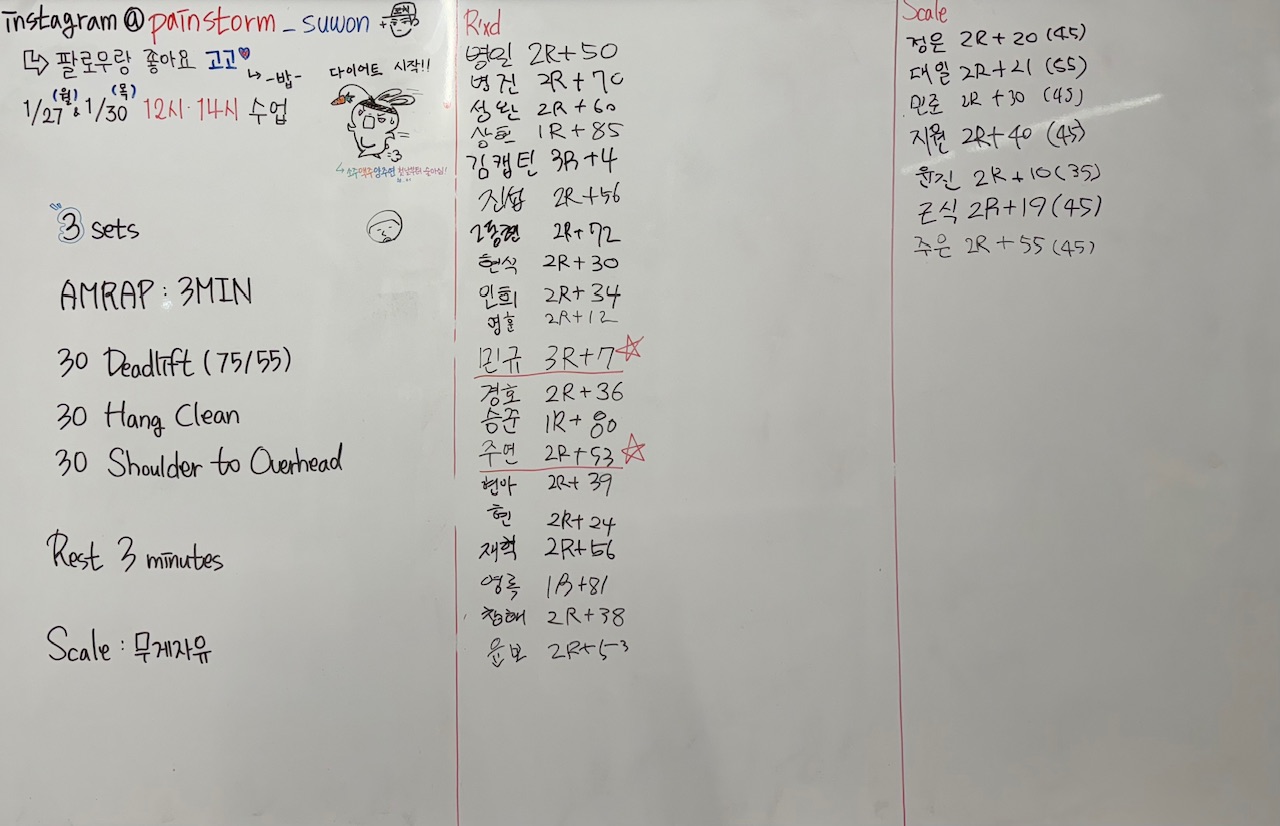 instagram@painstorm_suwon
↳ 팔로우랑 좋아요 고고♥
↳ -밥-
1/27(월) & 1/30(목) 12시·14시 수업
다이어트 시작!!
3 sets
AMRAP : 3MIN
30 Deadlift (75/55)
30 Hang Clean
30 Shoulder to Overhead
Rest 3 minutes
Scale : 무게자유
R'xd
병일 2R+50
병진 2R+70
성완 2R+60
상현 1R+85
김캡틴 3R+4
진섭 2R+56
2R+72
현식 2R+30
인희 2R+34
영훈 2R+12
민규 3R+7☆
경호 2R+36
승준 1R+80
주연 2R+53☆
현아 2R+39
현 2R+24
재혁 2R+56
영록 1R+81
2R+38
윤보 2R+53
Scale
정은 2R+20 (45)
대일 2R+21 (55)
민로 2R+30 (45)
지원 2R+40 (45)
윤진 2R+10 (35)
근식 2R+19 (45)
주은 2R+55 (45)